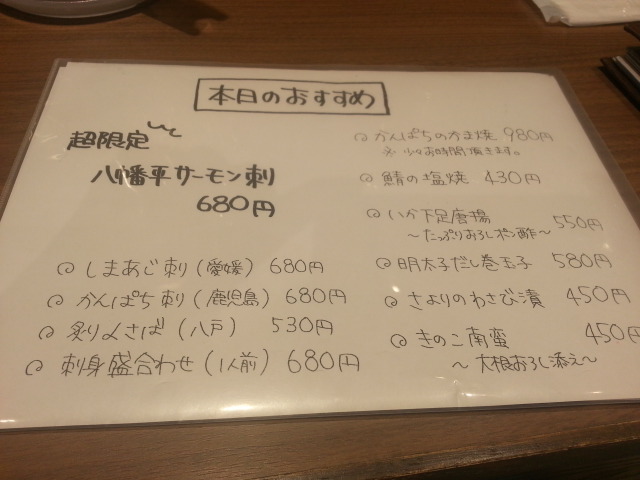 本日のおすすめ
超限定
八幡平サーモン刺
680円
しまあじ刺(愛媛) 680円
かんぱち刺(鹿児島) 680円
炙り〆さば(八戸) 530円
刺身盛合わせ(1人前) 680円
かんぱちのかま焼 980円
※少々お時間頂きます。
鯖の塩焼 430円
いか下足唐揚 550円
~たっぷりおろしポン酢~
明太子だし巻玉子 580円
さよりのわさび漬 450円
きのこ南蛮 450円
~大根おろし添え~